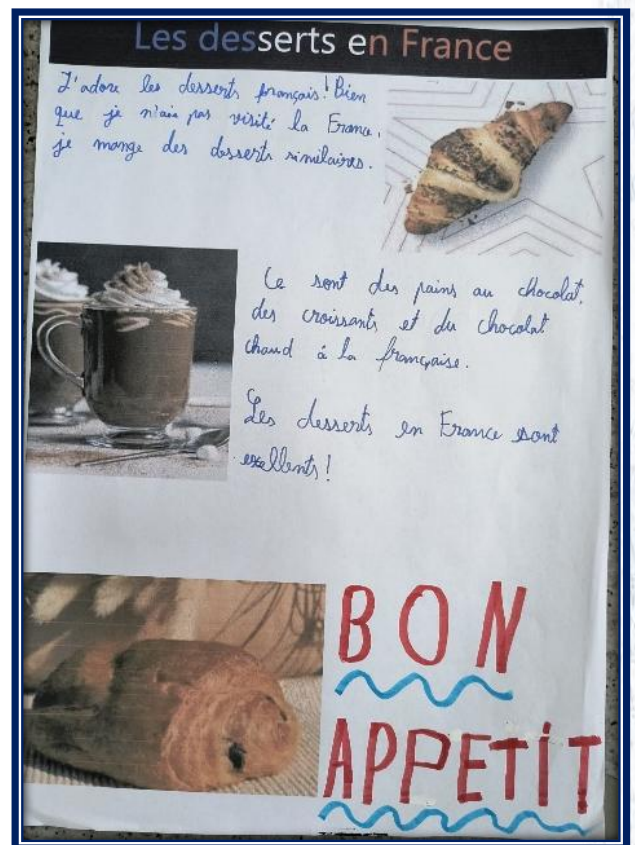 Les desserts en France
J'adore les desserts français! Bien
que je n'aie pas visité la France,
je mange des desserts similaires.
Ce sont des pains au chocolat,
des croissants et du chocolat
chaud à la française.
Les desserts en France sont
exellents!
BON
APPETIT